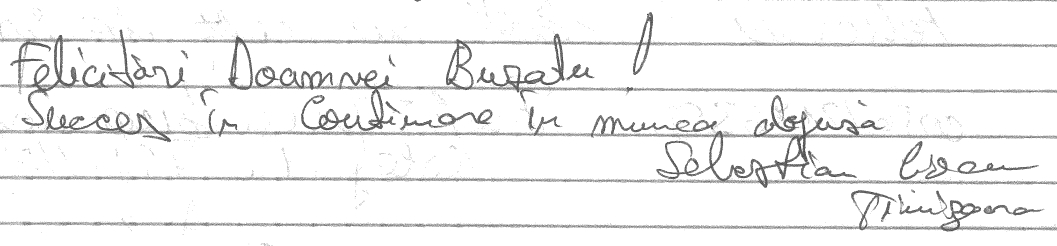 Felicitări Doamnei Buzatu!
Succes în continuare în munca depusă
Sebastian
Timișoara